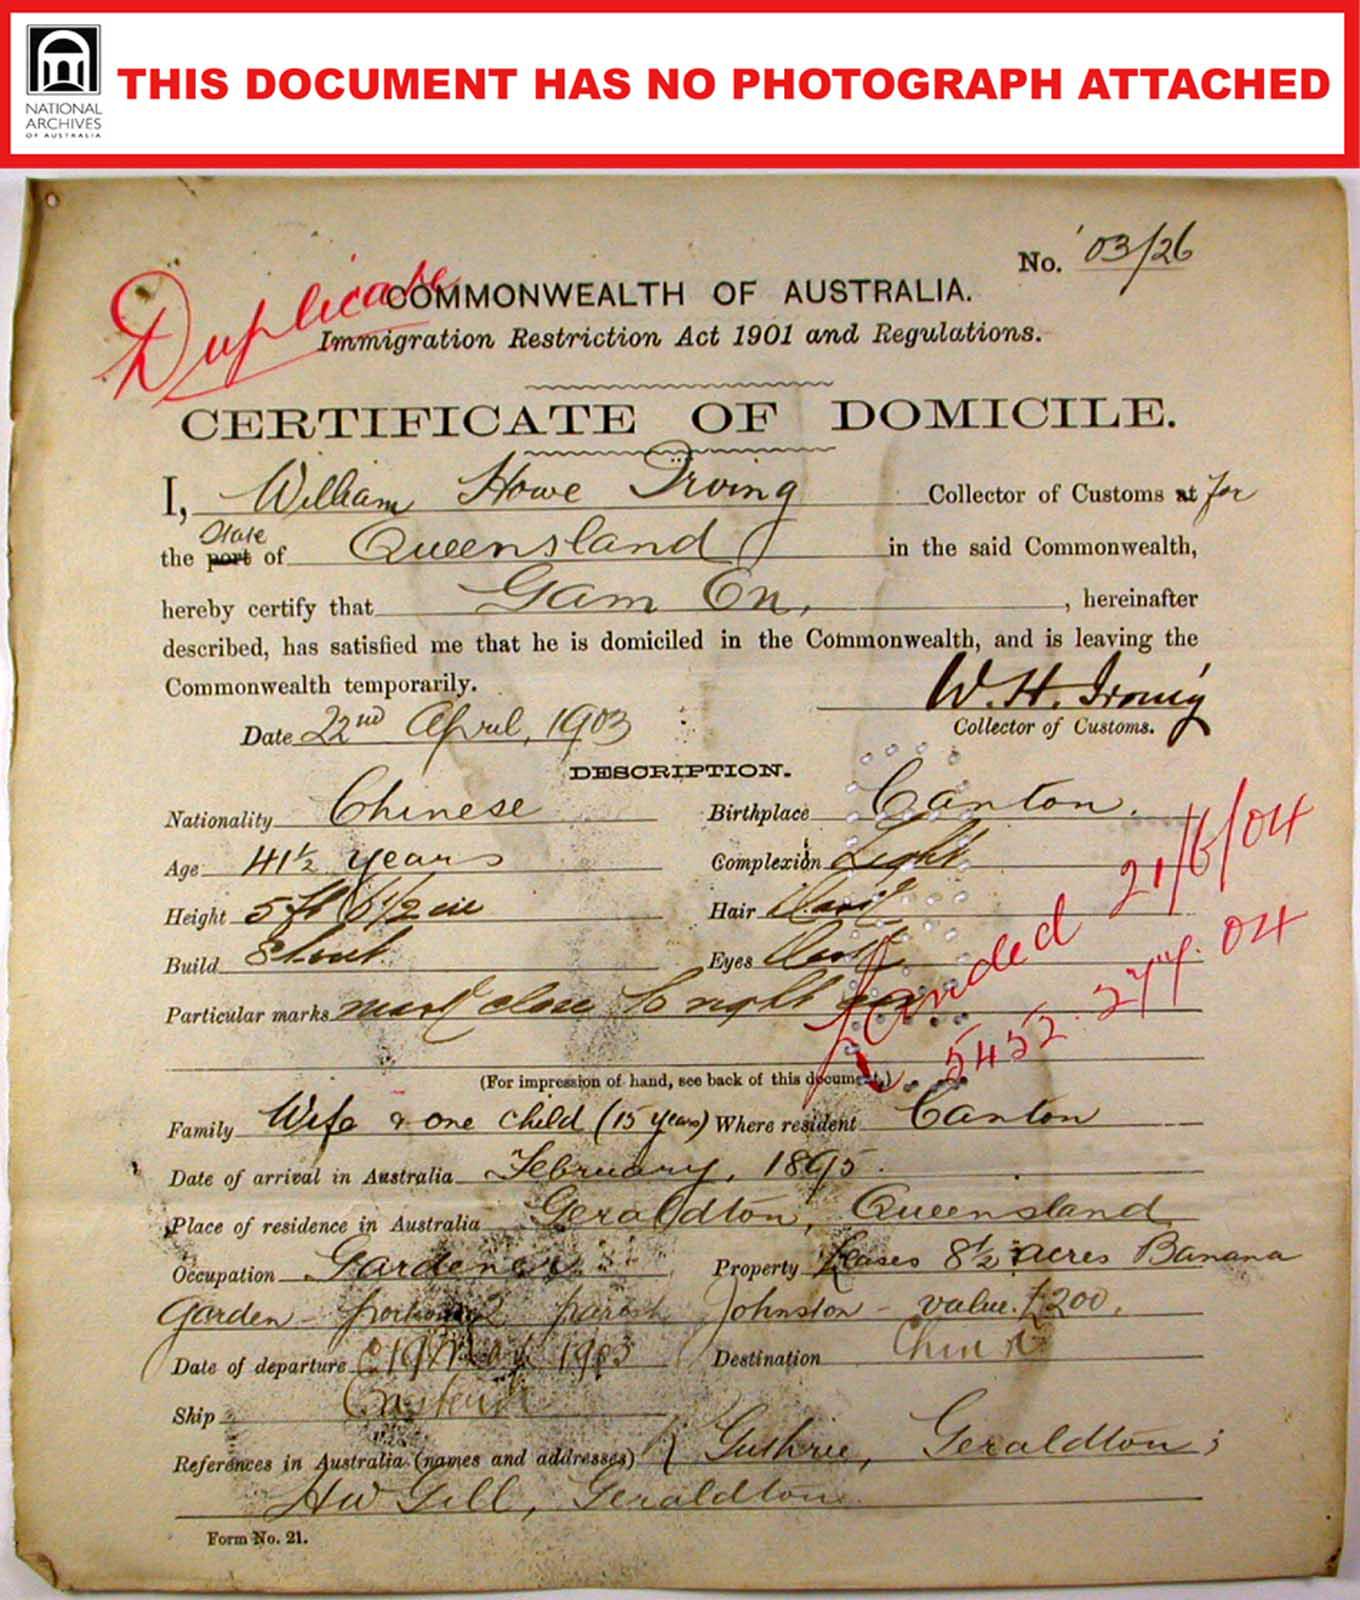 NATIONAL
ARCHIVES
OF AUSTRALIA
THIS DOCUMENT HAS NO PHOTOGRAPH ATTACHED
No. 03/26
Duplicate
COMMONWEALTH OF AUSTRALIA.
Immigration Restriction Act 1901 and Regulations.
CERTIFICATE OF DOMICILE.
I, William Howe Irving Collector of Customs at for
State
the port of Queensland in the said Commonwealth,
hereby certify that Gam On, , hereinafter
described, has satisfied me that he is domiciled in the Commonwealth, and is leaving the
Commonwealth temporarily.
W. H. Irving
Date 22nd April, 1903 Collector of Customs.
DESCRIPTION.
Nationality Chinese Birthplace Canton.
Age 41½ years Complexion Light
Height 5 ft 6½ in Hair Dark
Build Stout Eyes Dark
Particular marks mark close to right
Landed 21/6/04
5452 04
(For impression of hand, see back of this document.)
Family Wife & one child (15 years) Where resident Canton
Date of arrival in Australia February, 1895.
Place of residence in Australia Geraldton, Queensland
Occupation Gardener Property Leases 8½ acres Banana
Garden - portion 2 parish Johnston - value £200.
Date of departure May 1903 Destination China
Ship Eastern
References in Australia (names and addresses) Guthrie, Geraldton;
HW Gill, Geraldton
Form No. 21.